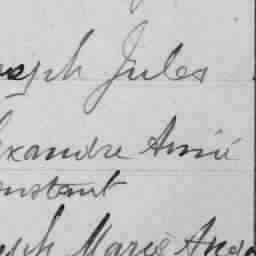 oseph Jules
lexandre Aimé
onstant
seph Marie Ange